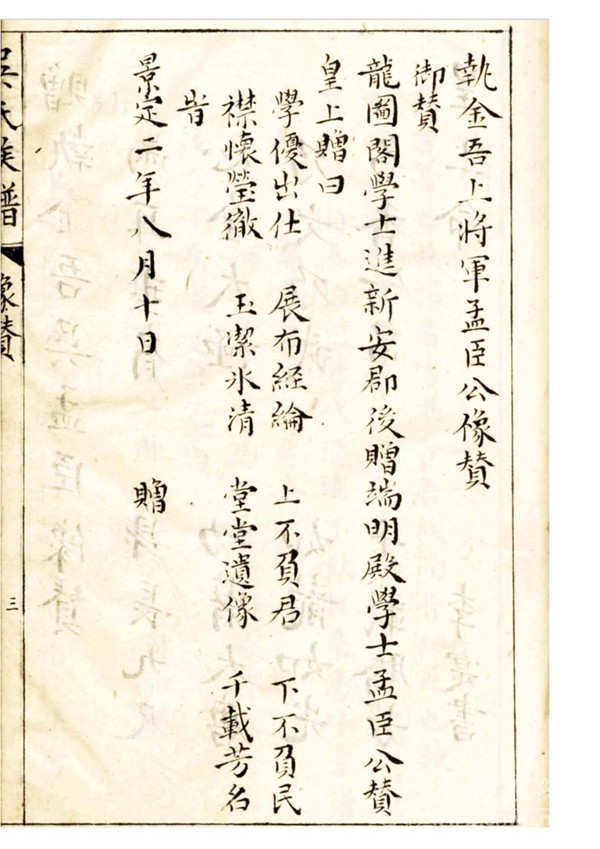 執金吾上將軍孟臣公像贊
御贊
龍圖閣學士進新安郡後贈端明殿學士孟臣公贊
皇上贈曰
學優出仕 展布經綸 上不負君 下不負民
襟懷瑩徹 玉潔氷清 堂堂遺像 千載芳名
旹
景定二年八月十日 贈
吳氏族譜 像贊 三